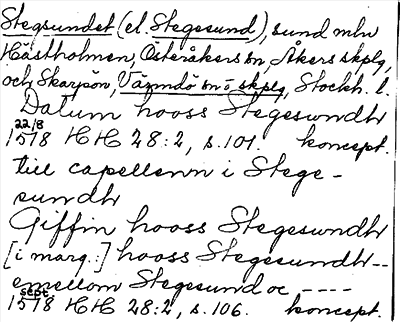 Stegsundet (el. Stegesund), sund mln
Hästholmen, Österåkers sn, Åkers skplg,
och Skarpön, Värmdö sn o skplg, Stockh. l.
Datum hooss Stegesundh
22/8 1578 HH 28:2, s. 101. koncept.
till capellenn i Stege-
sundh
Giffin hooss Stegesundh
[i marg:] hooss Stegesundh--
emellom Stegesund oc ----
sept. 1578 HH 28:2, s. 106. koncept.